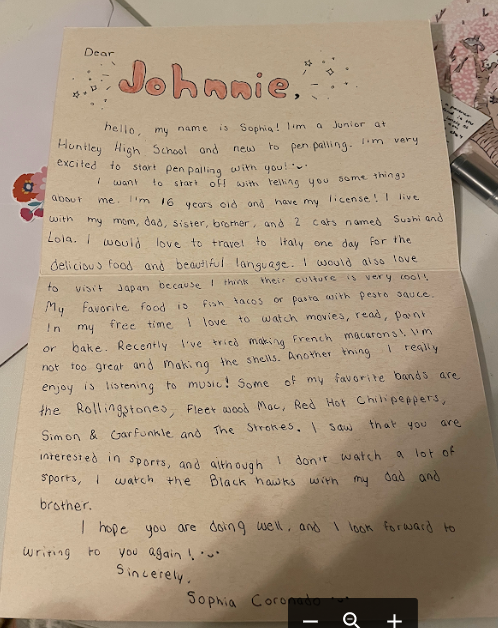 Dear
Johnnie,
hello, my name is Sophia! I'm a Junior at
Huntley High School and new to pen palling. I'm very
excited to start pen palling with you!
I want to start off with telling you some things
about me. I'm 16 years old and have my license! I live
with my mom, dad, sister, brother, and 2 cats named Sushi and
Lola. I would love to travel to Italy one day for the
delicious food and beautiful language. I would also love
to visit Japan because I think their culture is very cool!
My favorite food is fish tacos or pasta with pesto sauce.
In my free time I love to watch movies, read, paint
or bake. Recently I've tried making French macarons! I'm
not too great and making the shells. Another thing I really
enjoy is listening to music! Some of my favorite bands are
the Rollingstones, Fleet wood Mac, Red Hot Chilipeppers,
Simon & Garfunkle and The Strokes. I saw that you are
interested in sports, and although I don't watch a lot of
sports, I watch the Black hawks with my dad and
brother.
I hope you are doing well, and I look forward to
writing to you again!
Sincerely,
Sophia Coronado